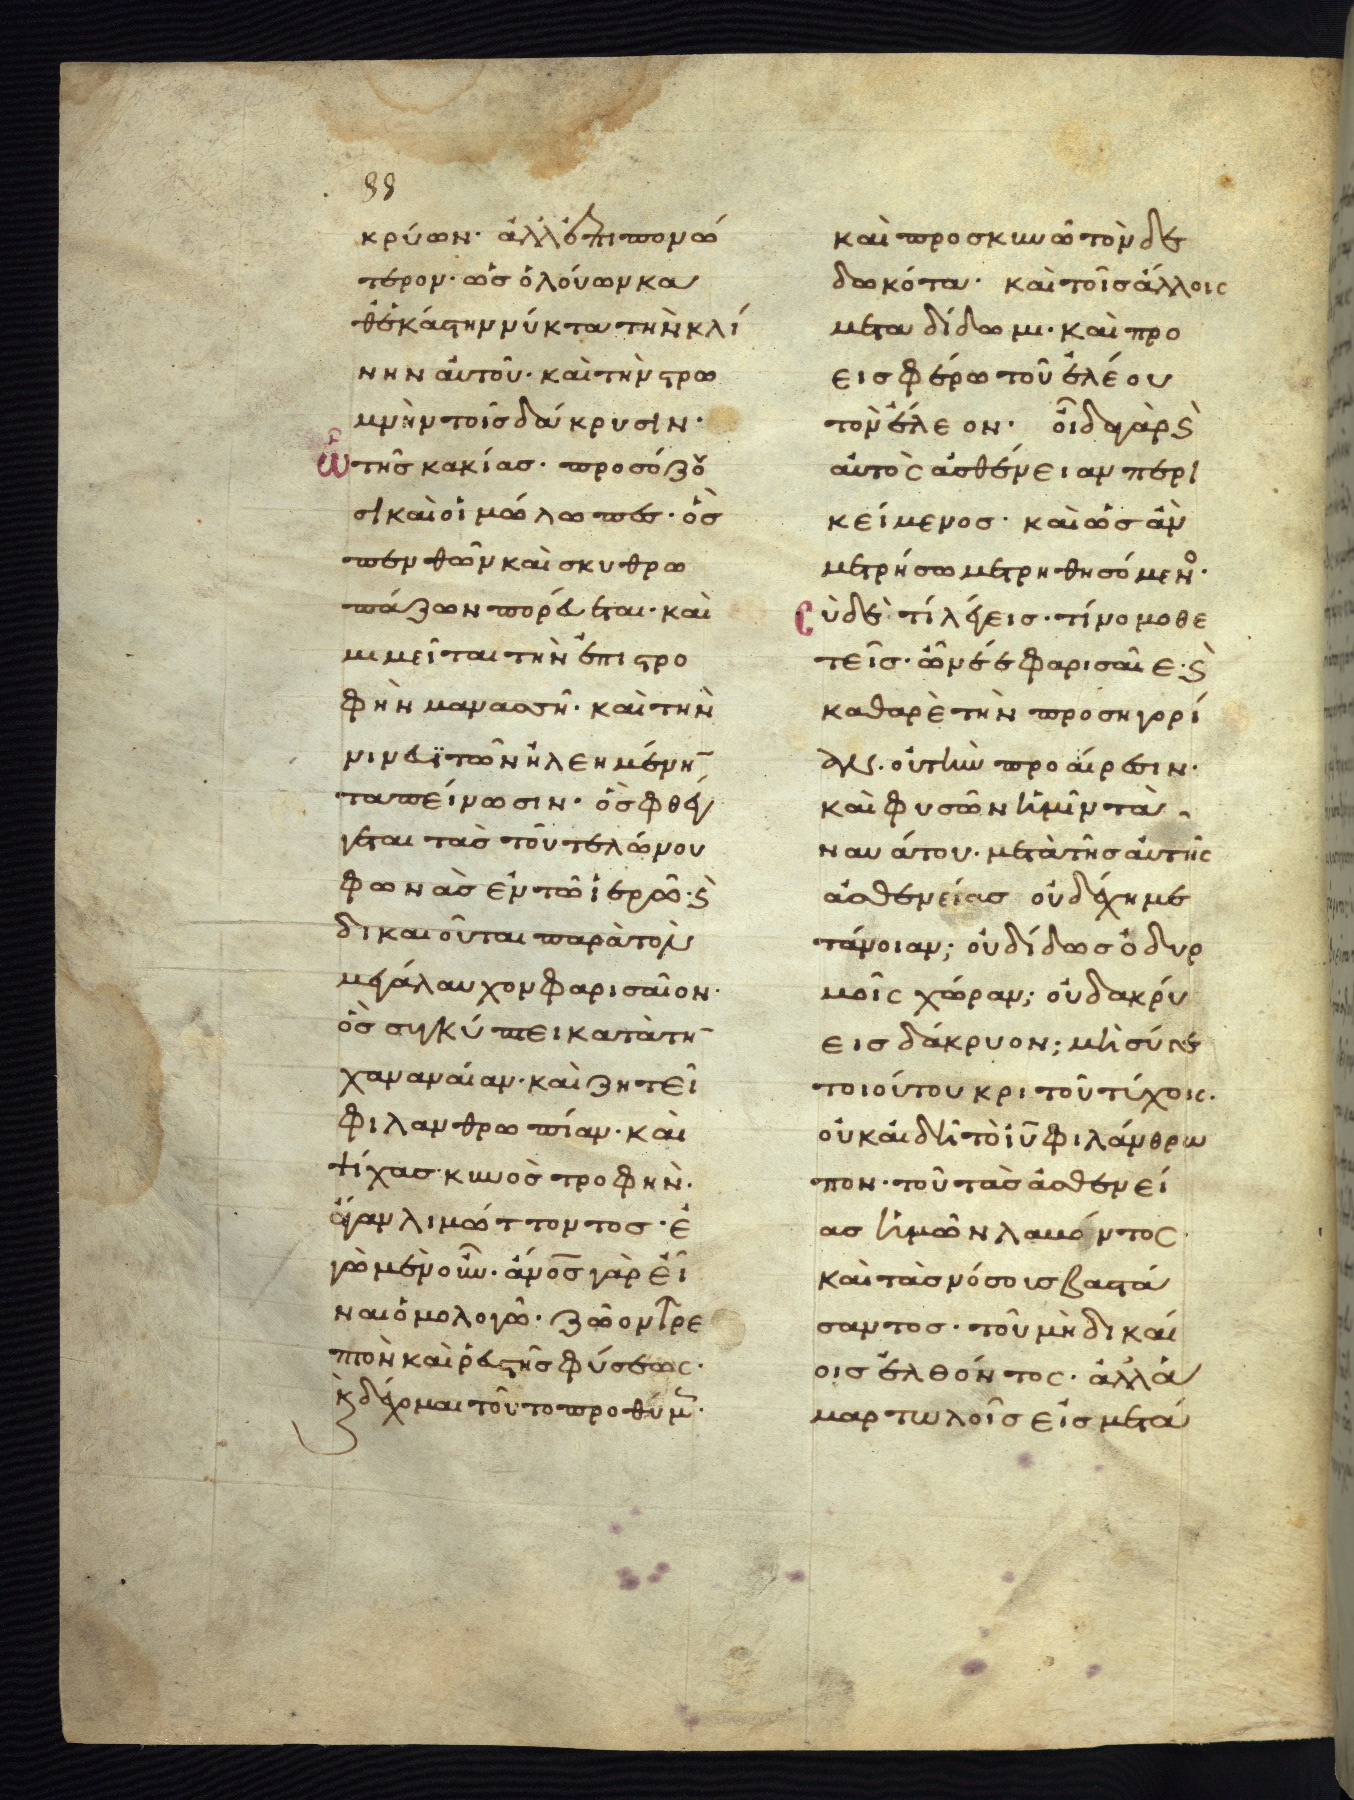 88
κρύων· ἀλλ' ἐπιπονώ
τερον· ὡς ὁ λούων κα
θ' ἑκάστην νύκτα τὴν κλί
νην αὐτοῦ· καὶ τὴν στρω
μνὴν τοῖς δάκρυσιν·
ὧ τῆς κακίας· προσόζου
σι καὶ οἱ μώλωπες· ὃς
πενθῶν καὶ σκυθρω
πάζων πορεύεται· καὶ
μιμεῖται τὴν ἐπιστρο
φὴν μανασσῆ· καὶ τὴν
νινευϊτῶν ἠλεημένην
ταπείνωσιν· ὃς φθέγ
γεται τὰς τοῦ τελώνου
φωνὰς ἐν τῷ ἱερῷ· καὶ
δικαιοῦται παρὰ τὸν
μεγάλαυχον φαρισαῖον·
ὃς συγκύπτει κατὰ τὴν
χαναναίαν· καὶ ζητεῖ
φιλανθρωπίαν· καὶ
ψίχας· κυνὸς τροφὴν·
ἄγαν λιμώττοντος· ἐ
γὼ μὲν οὖν· ἄνος γὰρ εἶ
ναι ὁμολογῶ· ζῶον τρε
πτὸν καὶ ῥευστῆς φύσεως·
καὶ δέχομαι τοῦτο προθύμως·
καὶ προσκυνῶ τὸν δε
δωκότα· καὶ τοῖς ἄλλοις
μεταδίδωμι· καὶ προ
εισφέρω τοῦ ἐλέου
τὸν ἔλεον· οἶδα γὰρ καὶ
αὐτὸς ἀσθένειαν περι
κείμενος· καὶ ὡς ἂν
μετρήσω μετρηθησόμενος·
Σὺ δὲ τί λέγεις· τί νομοθε
τεῖς· ὦ νέε φαρισαῖε· καὶ
καθαρὲ τὴν προσηγορί
αν· οὐ τὴν προαίρεσιν·
καὶ φυσῶν ἡμῖν τὰ
ναυάτου· μετὰ τῆς αὐτῆς
ἀσθενείας οὐ δέχῃ με
τάνοιαν; οὐ δίδως ὀδυρ
μοῖς χώραν; οὐ δακρύ
εις δάκρυον; μὴ σύ γε
τοιούτου κριτοῦ τύχοις·
οὐκ αἰδῇ τὸ ἰῦ φιλάνθρω
πον· τοῦ τὰς ἀσθενεί
ας ἡμῶν λαβόντος·
καὶ τὰς νόσους βαστά
σαντος· τοῦ μὴ δικαί
οις ἐλθόντος· ἀλλ' ἁ
μαρτωλοῖς εἰς μετά